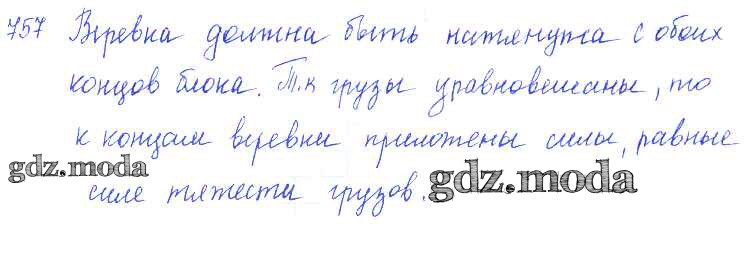 757 Веревка должна быть натянута с обоих
концов блока. Т.к грузы уравновешаны, то
к концам веревки приложены силы, равные
gdz.moda
силе тяжести грузов. gdz.moda